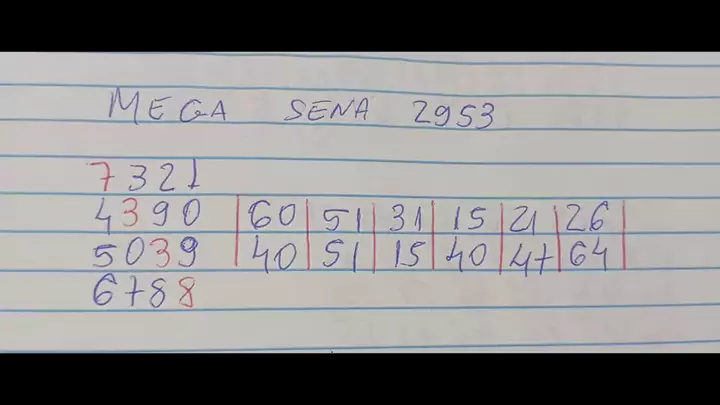 MEGA SENA 2953
7321
4390 60 51 31 15 21 26
5039 40 51 15 40 47 64
6788